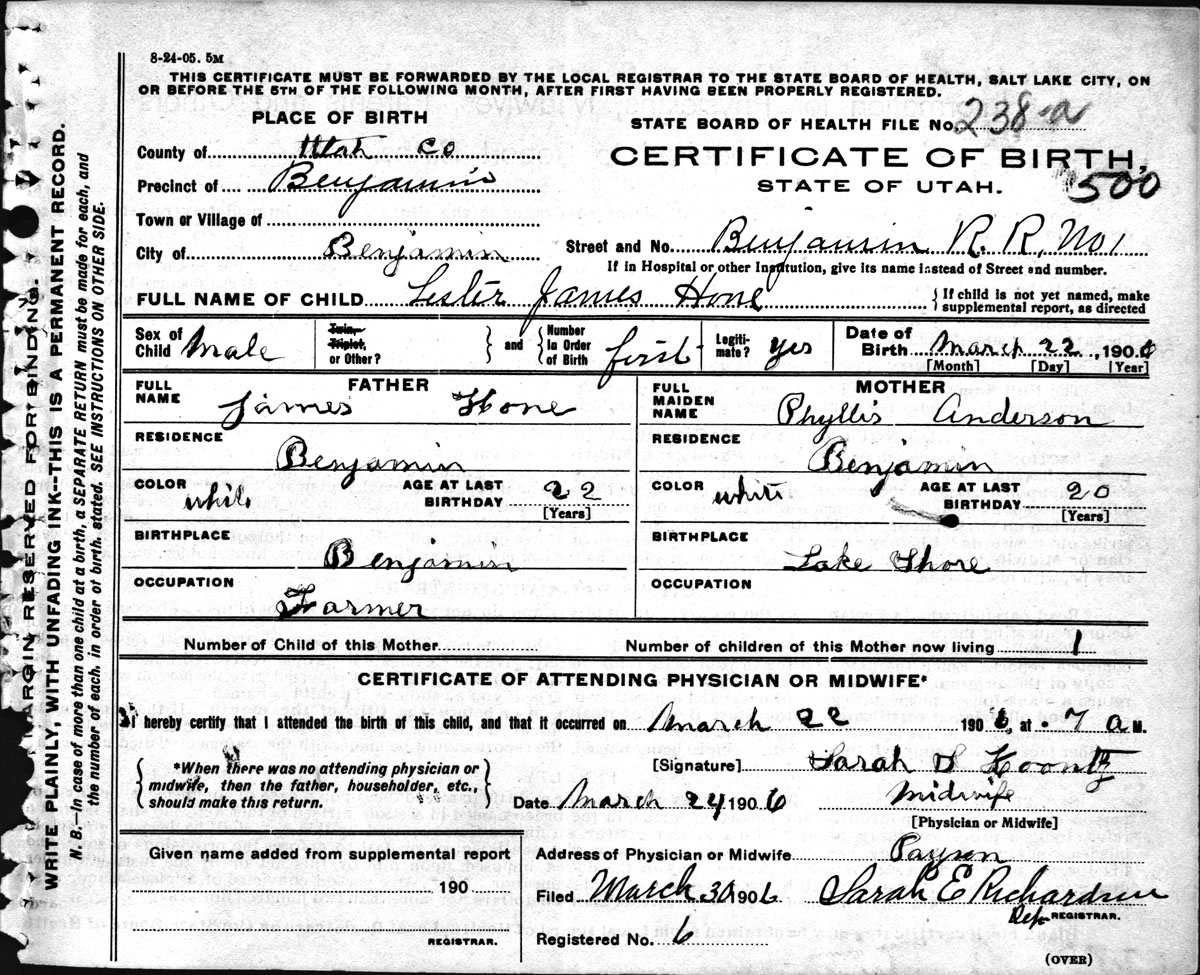 8-24-05. 5M
THIS CERTIFICATE MUST BE FORWARDED BY THE LOCAL REGISTRAR TO THE STATE BOARD OF HEALTH, SALT LAKE CITY, ON
OR BEFORE THE 5TH OF THE FOLLOWING MONTH, AFTER FIRST HAVING BEEN PROPERLY REGISTERED.
PLACE OF BIRTH
STATE BOARD OF HEALTH FILE No. 238-a
County of Utah Co
CERTIFICATE OF BIRTH,
Precinct of Benjamin
STATE OF UTAH.
500
Town or Village of
City of Benjamin
Street and No. Benjamin R. R. No 1
If in Hospital or other Institution, give its name instead of Street and number.
FULL NAME OF CHILD Lester James Hone
{ If child is not yet named, make
supplemental report, as directed
Sex of Child Male
Twin, Triplet, or Other?
} and { Number In Order of Birth first
Legiti- mate? yes
Date of Birth March 22, 1906
[Month] [Day] [Year]
FATHER
FULL NAME James Hone
RESIDENCE
Benjamin
COLOR white AGE AT LAST BIRTHDAY 22
[Years]
BIRTHPLACE
Benjamin
OCCUPATION
Farmer
MOTHER
FULL MAIDEN NAME Phyllis Anderson
RESIDENCE
Benjamin
COLOR white AGE AT LAST BIRTHDAY 20
[Years]
BIRTHPLACE
Lake Shore
OCCUPATION
Number of Child of this Mother
Number of children of this Mother now living 1
CERTIFICATE OF ATTENDING PHYSICIAN OR MIDWIFE*
I hereby certify that I attended the birth of this child, and that it occurred on March 22 1906, at 7 a M.
{ *When there was no attending physician or
midwife, then the father, householder, etc.,
should make this return. }
[Signature] Sarah S Koontz
Date March 24 1906 Midwife
[Physician or Midwife]
Given name added from supplemental report
190
REGISTRAR.
Address of Physician or Midwife Payson
Filed March 30 1906 Sarah E Richardson
Dep REGISTRAR.
Registered No. 6
(OVER)
MARGIN RESERVED FOR BINDING.
WRITE PLAINLY, WITH UNFADING INK--THIS IS A PERMANENT RECORD.
N. B.—In case of more than one child at a birth, a SEPARATE RETURN must be made for each, and
the number of each, in order of birth, stated. SEE INSTRUCTIONS ON OTHER SIDE.